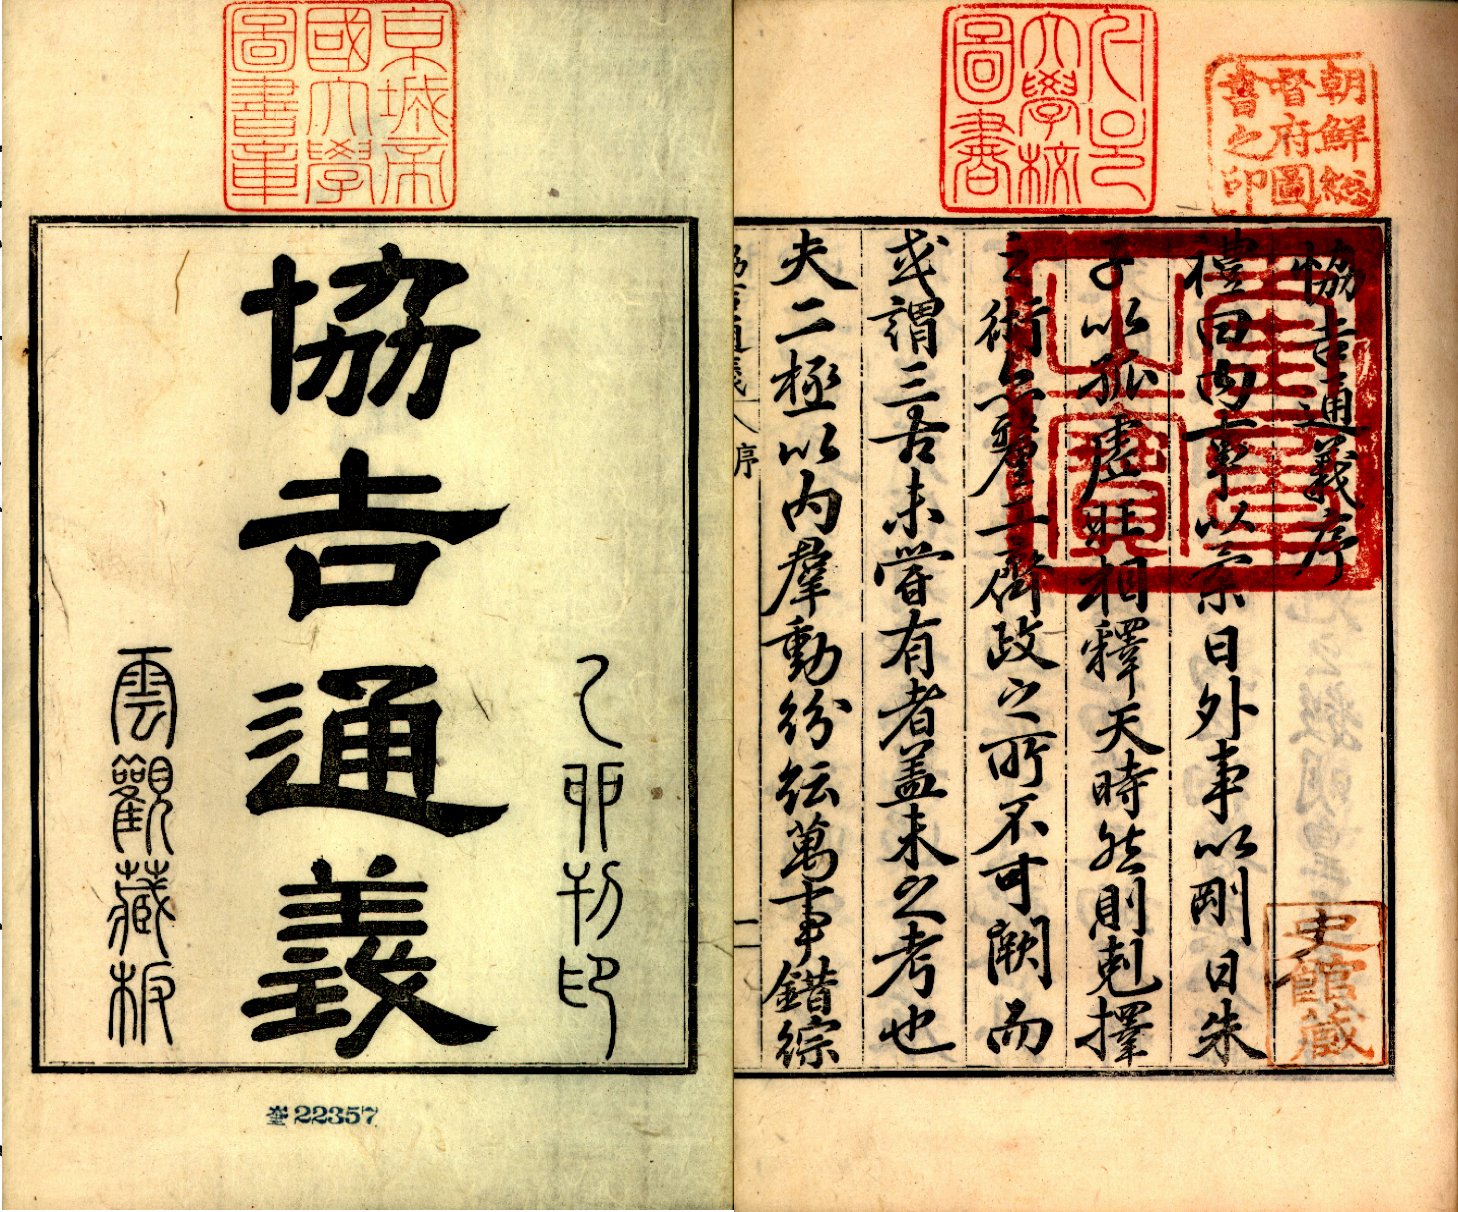 京城帝國大學圖書章
乙卯刊印
協吉通義
雲觀藏板
奎22357
朝鮮総督府圖書之印
서울大學校圖書
恊吉通義序
禮曰內事以柔日外事以剛日朱
子以孤虛旺相釋天時然則剋擇
之術亦釐工齊政之所不可闕而
或謂三古未嘗有者盖未之考也
夫二極以内羣動紛紜萬事錯綜
協吉通義 序 一
史館藏